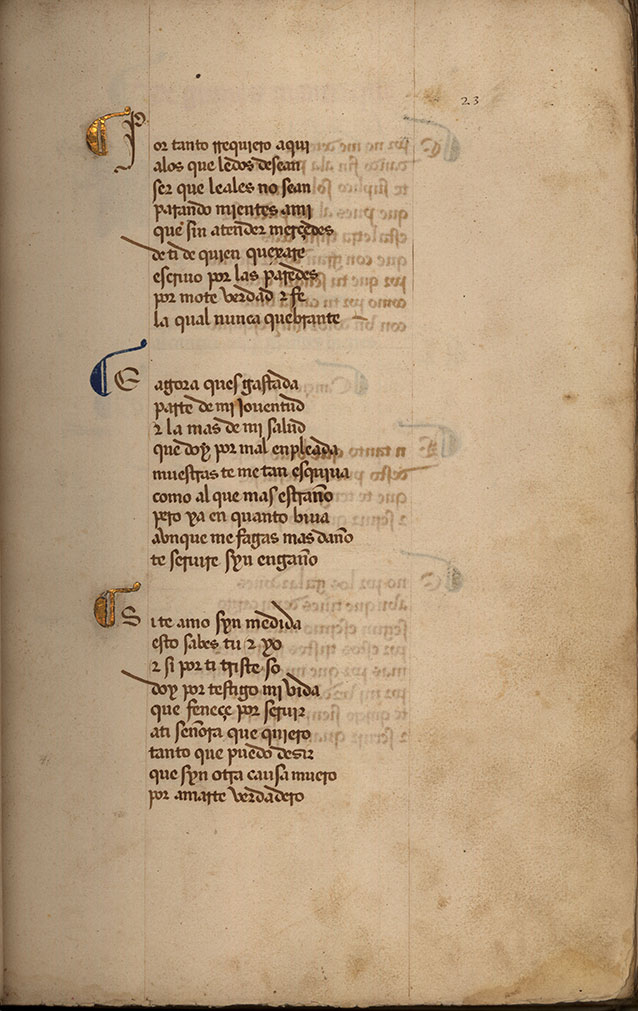 23
Por tanto rrequiero aqui
alos que ledos desean
ser que leales no sean
parando mientes ami
que sin atender merçedes
de ti de quien quexare
escriuo por las paredes
por mote verdad τ fe
la qual nunca quebrante
E agora ques gastada
parte de mi Jouentud
τ la mas de mi salud
que doy por mal enpleada
muestras te me tan esquiua
como al que mas estraño
pero ya en quanto biua
avnque me fagas mas daño
te seruire syn engaño
Si te amo syn medida
esto sabes tu τ yo
τ si por ti triste so
doy por testigo mi vida
que feneçe por seruir
ati señora que quiero
tanto que puedo desir
que syn otra causa muero
por amarte verdadero